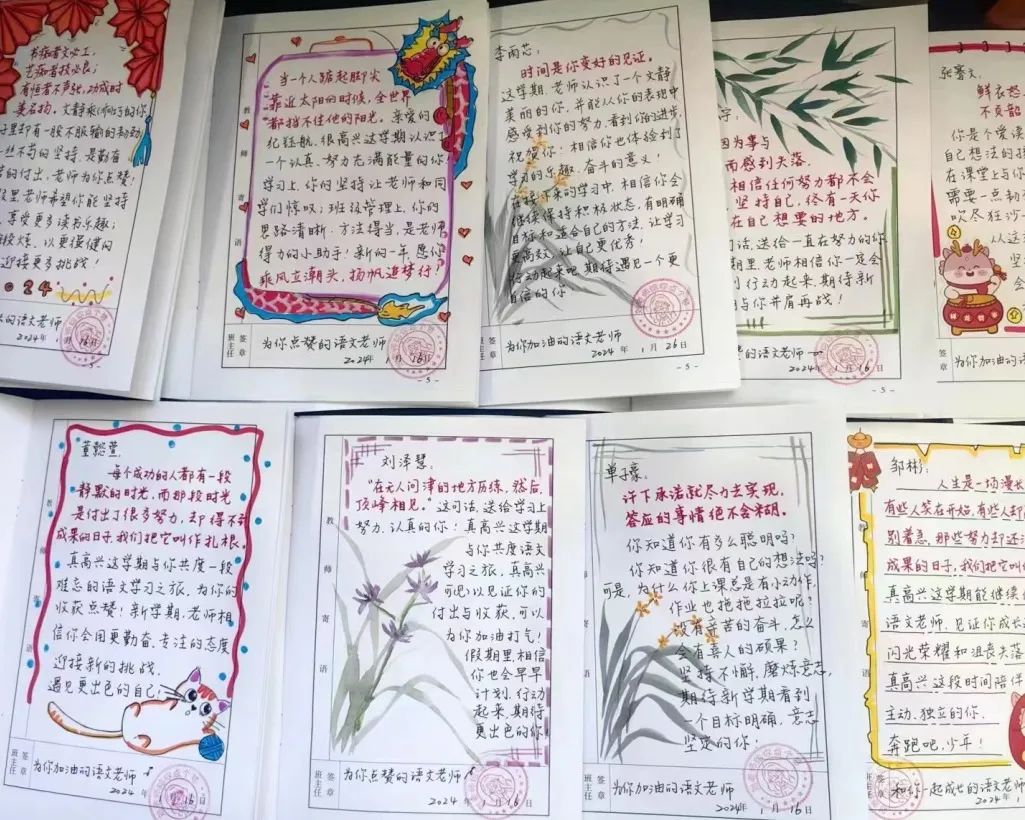 书痴者文必工,
艺痴者技必良;
有恒者不声张,功成时
的付出,老师为你点赞!
假里老师希望你能坚持
享受更多读书乐趣;
以更强健的
迎接更多挑战!
2024
的语文老师
月16日
-5-
当一个人踮起脚尖
靠近太阳的时候,全世界
都挡不住他的阳光。亲爱的
纪钰航,很高兴这学期认识了
一个认真、努力充满能量的你
学习上,你的坚持让老师和同
学们惊叹;班级管理上,你的
思路清晰、方法得当,是老师
得力的小助手!新的一年,愿你
乘风立潮头,扬帆追梦行!
教师寄语
班主任签章
为你点赞的语文老师
2024年1月16日
-5-
李雨芯:
时间是你变好的见证。
这学期,老师认识了一个文静
美丽的你,并能从你的表现中
感受到你的努力,看到你的进步,
祝贺你!相信你也体验到了
学习的乐趣、奋斗的意义!
在接下来的学习中,相信你会
继续保持积极状态,有明确
目标和适合自己的方法,让学习
更高效,让自己更优秀!
行动起来吧,期待遇见一个更
自信的你
班主任签章
为你加油的语文老师
2024年1月26日
-5-
因为事与
而感到失落,
相信任何努力都不会
坚持自己,终有一天你
在自己想要的地方。
话,送给一直在努力的你
期里,老师相信你一定会
行动起来,期待新
与你并肩再战!
的语文老师
2024年1月16日
-5-
鲜衣怒
不负韶
你是个爱读
自己想法的
在课堂上与你
需要一点勇
吹尽狂沙
从这
签章
为你加油的语
董懿萱:
每个成功的人都有一段
静默的时光,而那段时光
是付出了很多努力,却得不到
成果的日子,我们把它叫作扎根。
真高兴这学期与你共度一段
难忘的语文学习之旅,为你的
收获点赞!新学期,老师相
信你会用更勤奋、专注的态度
迎接新的挑战,
遇见更出色的自己!
教师寄语
班主任签章
为你加油的语文老师
2024年1月16日
刘泽慧:
“在无人问津的地方历练,然后,
顶峰相见。”这句话,送给学习上
努力、认真的你!真高兴这学期
与你共度语文
学习之旅,真高兴
可以见证你的
付出与收获,可以
为你加油打气!
假期里,相信
你也会早早
计划,行动
起来,期待
更出色的你!
教师寄语
班主任签章
为你点赞的语文老师
2024年1月16日
单子豪:
许下承诺就尽力去实现,
答应的事情绝不含糊。
你知道你有多么聪明吗?
你知道你很有自己的想法吗?
可是,为什么你上课总是有小动作,
作业也拖拖拉拉呢?
没有辛苦的奋斗,怎么
会有喜人的硕果?
坚持不懈,磨炼意志,
期待新学期看到
一个目标明确、意志
坚定的你!
班主任签章
为你加油的语文老师
2024年1月16日
邹彬:
人生是一场漫长
有些人笑在开始,有些人却
别着急,那些努力却还没
成果的日子,我们把它叫
真高兴这学期能继续
语文老师,见证你成长
闪光荣耀和沮丧失落
真高兴这段时间陪伴
主动、独立的你.
奔跑吧,少年!
班主任签章
和你一起成长的语文老师
2024年1